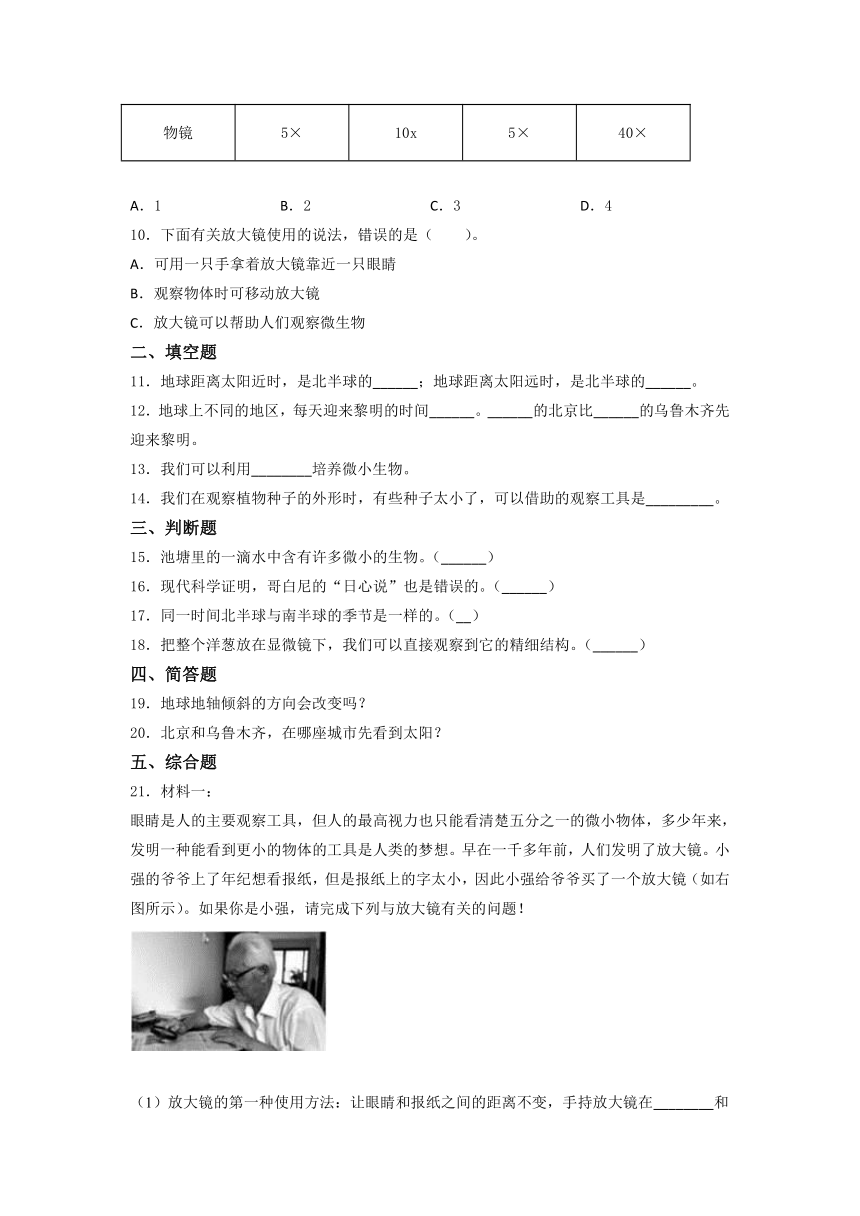 物镜 5× 10x 5× 40×
A．1 B．2 C．3 D．4
10．下面有关放大镜使用的说法，错误的是（ ）。
A．可用一只手拿着放大镜靠近一只眼睛
B．观察物体时可移动放大镜
C．放大镜可以帮助人们观察微生物
二、填空题
11．地球距离太阳近时，是北半球的______；地球距离太阳远时，是北半球的______。
12．地球上不同的地区，每天迎来黎明的时间______。______的北京比______的乌鲁木齐先
迎来黎明。
13．我们可以利用________培养微小生物。
14．我们在观察植物种子的外形时，有些种子太小了，可以借助的观察工具是_________。
三、判断题
15．池塘里的一滴水中含有许多微小的生物。（______）
16．现代科学证明，哥白尼的“日心说”也是错误的。（______）
17．同一时间北半球与南半球的季节是一样的。（__）
18．把整个洋葱放在显微镜下，我们可以直接观察到它的精细结构。（______）
四、简答题
19．地球地轴倾斜的方向会改变吗？
20．北京和乌鲁木齐，在哪座城市先看到太阳？
五、综合题
21．材料一：
眼睛是人的主要观察工具，但人的最高视力也只能看清楚五分之一的微小物体，多少年来，
发明一种能看到更小的物体的工具是人类的梦想。早在一千多年前，人们发明了放大镜。小
强的爷爷上了年纪想看报纸，但是报纸上的字太小，因此小强给爷爷买了一个放大镜（如右
图所示）。如果你是小强，请完成下列与放大镜有关的问题！
（1）放大镜的第一种使用方法：让眼睛和报纸之间的距离不变，手持放大镜在________和